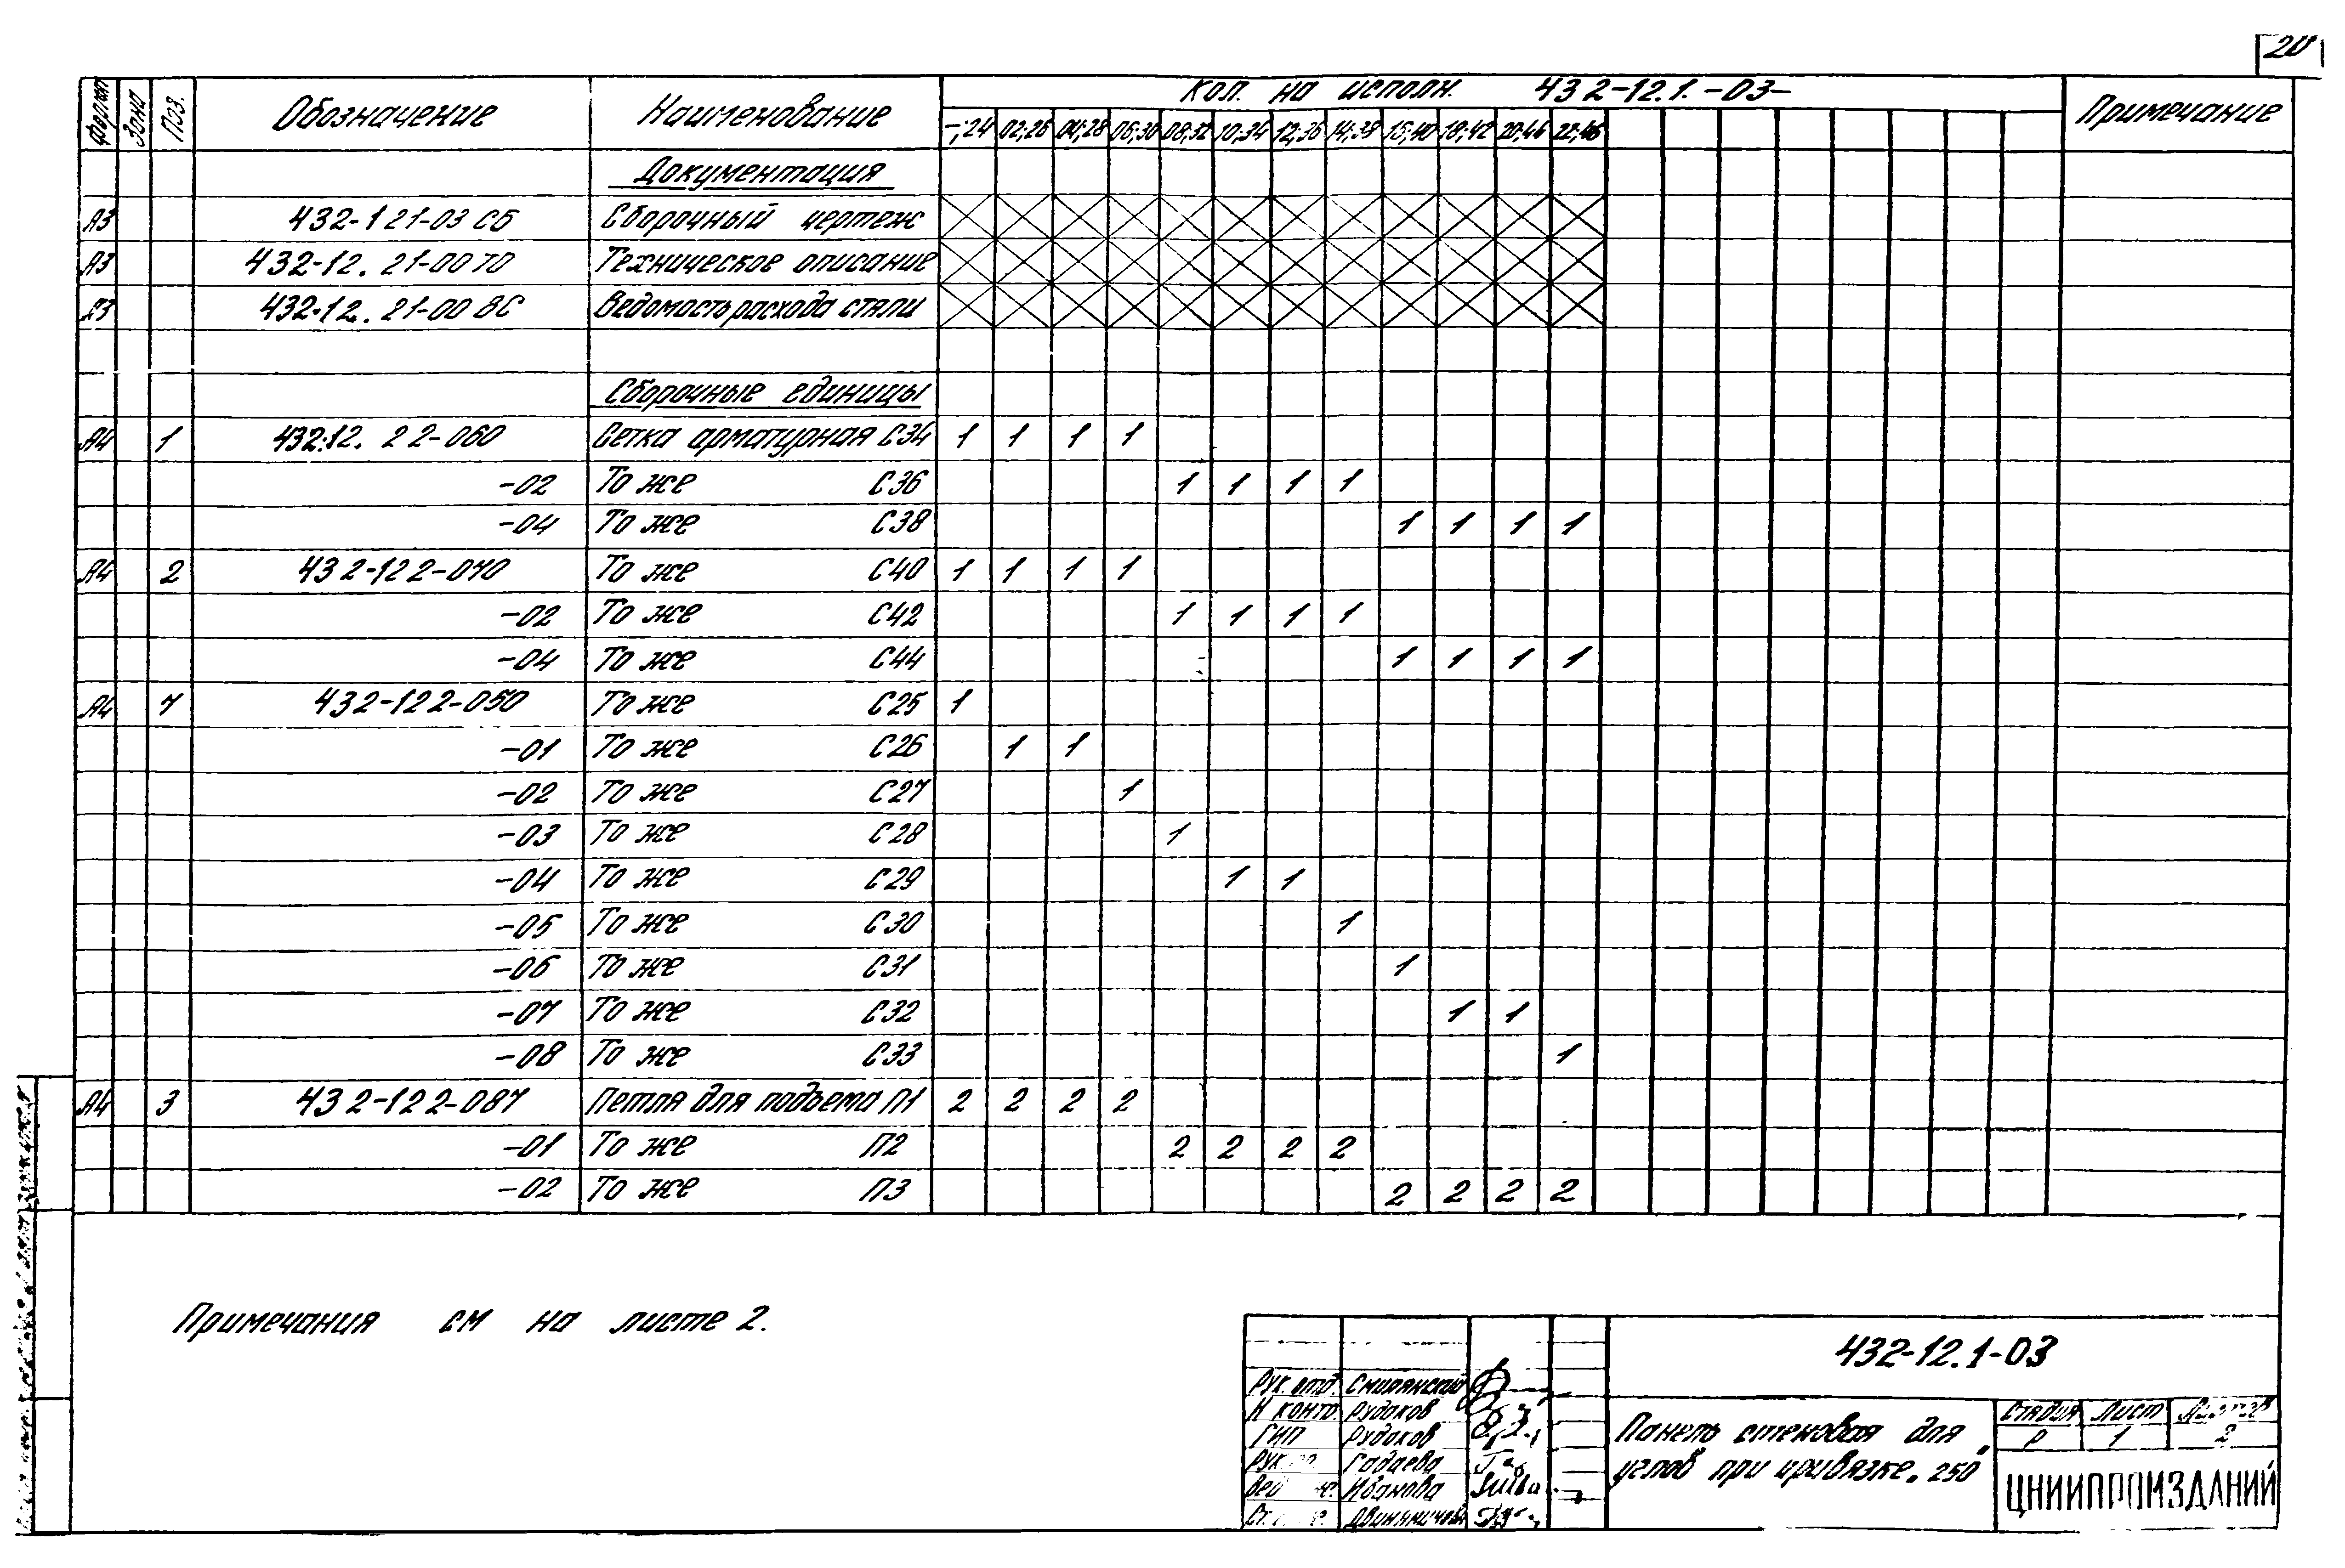 20
Формат Зона Поз. Обозначение Наименование Кол. на исполн. 432-12.1.-03- Примечание
-;24 02;26 04;28 06;30 08;32 10;34 12;36 14;38 16;40 18;42 20;46 22;46
Документация
А3 432-121-03 СБ Сборочный чертеж
А3 432-12. 21-00 ТО Техническое описание
А3 432-12. 21-00 ВС Ведомость расхода стали
Сборочные единицы
А4 1 432.12. 22-060 Сетка арматурная С34 1 1 1 1
-02 То же С36 1 1 1 1
-04 То же С38 1 1 1 1
А4 2 432-122-070 То же С40 1 1 1 1
-02 То же С42 1 1 1 1
-04 То же С44 1 1 1 1
А4 7 432-122-050 То же С25 1
-01 То же С26 1 1
-02 То же С27 1
-03 То же С28 1
-04 То же С29 1 1
-05 То же С30 1
-06 То же С31 1
-07 То же С32 1 1
-08 То же С33 1
А4 3 432-122-087 Петля для подъема П1 2 2 2 2
-01 То же П2 2 2 2 2
-02 То же П3 2 2 2 2
Примечания см на листе 2.
432-12.1-03
Рук. отд. Смилянский
Н контр Рудаков
ГИП Рудаков
Рук. Гадаева
Иванова
Ст.
Панель стеновая для
углов при привязке „250"
Стадия Лист Листов
Р 1 2
ЦНИИПРОМЗДАНИЙ